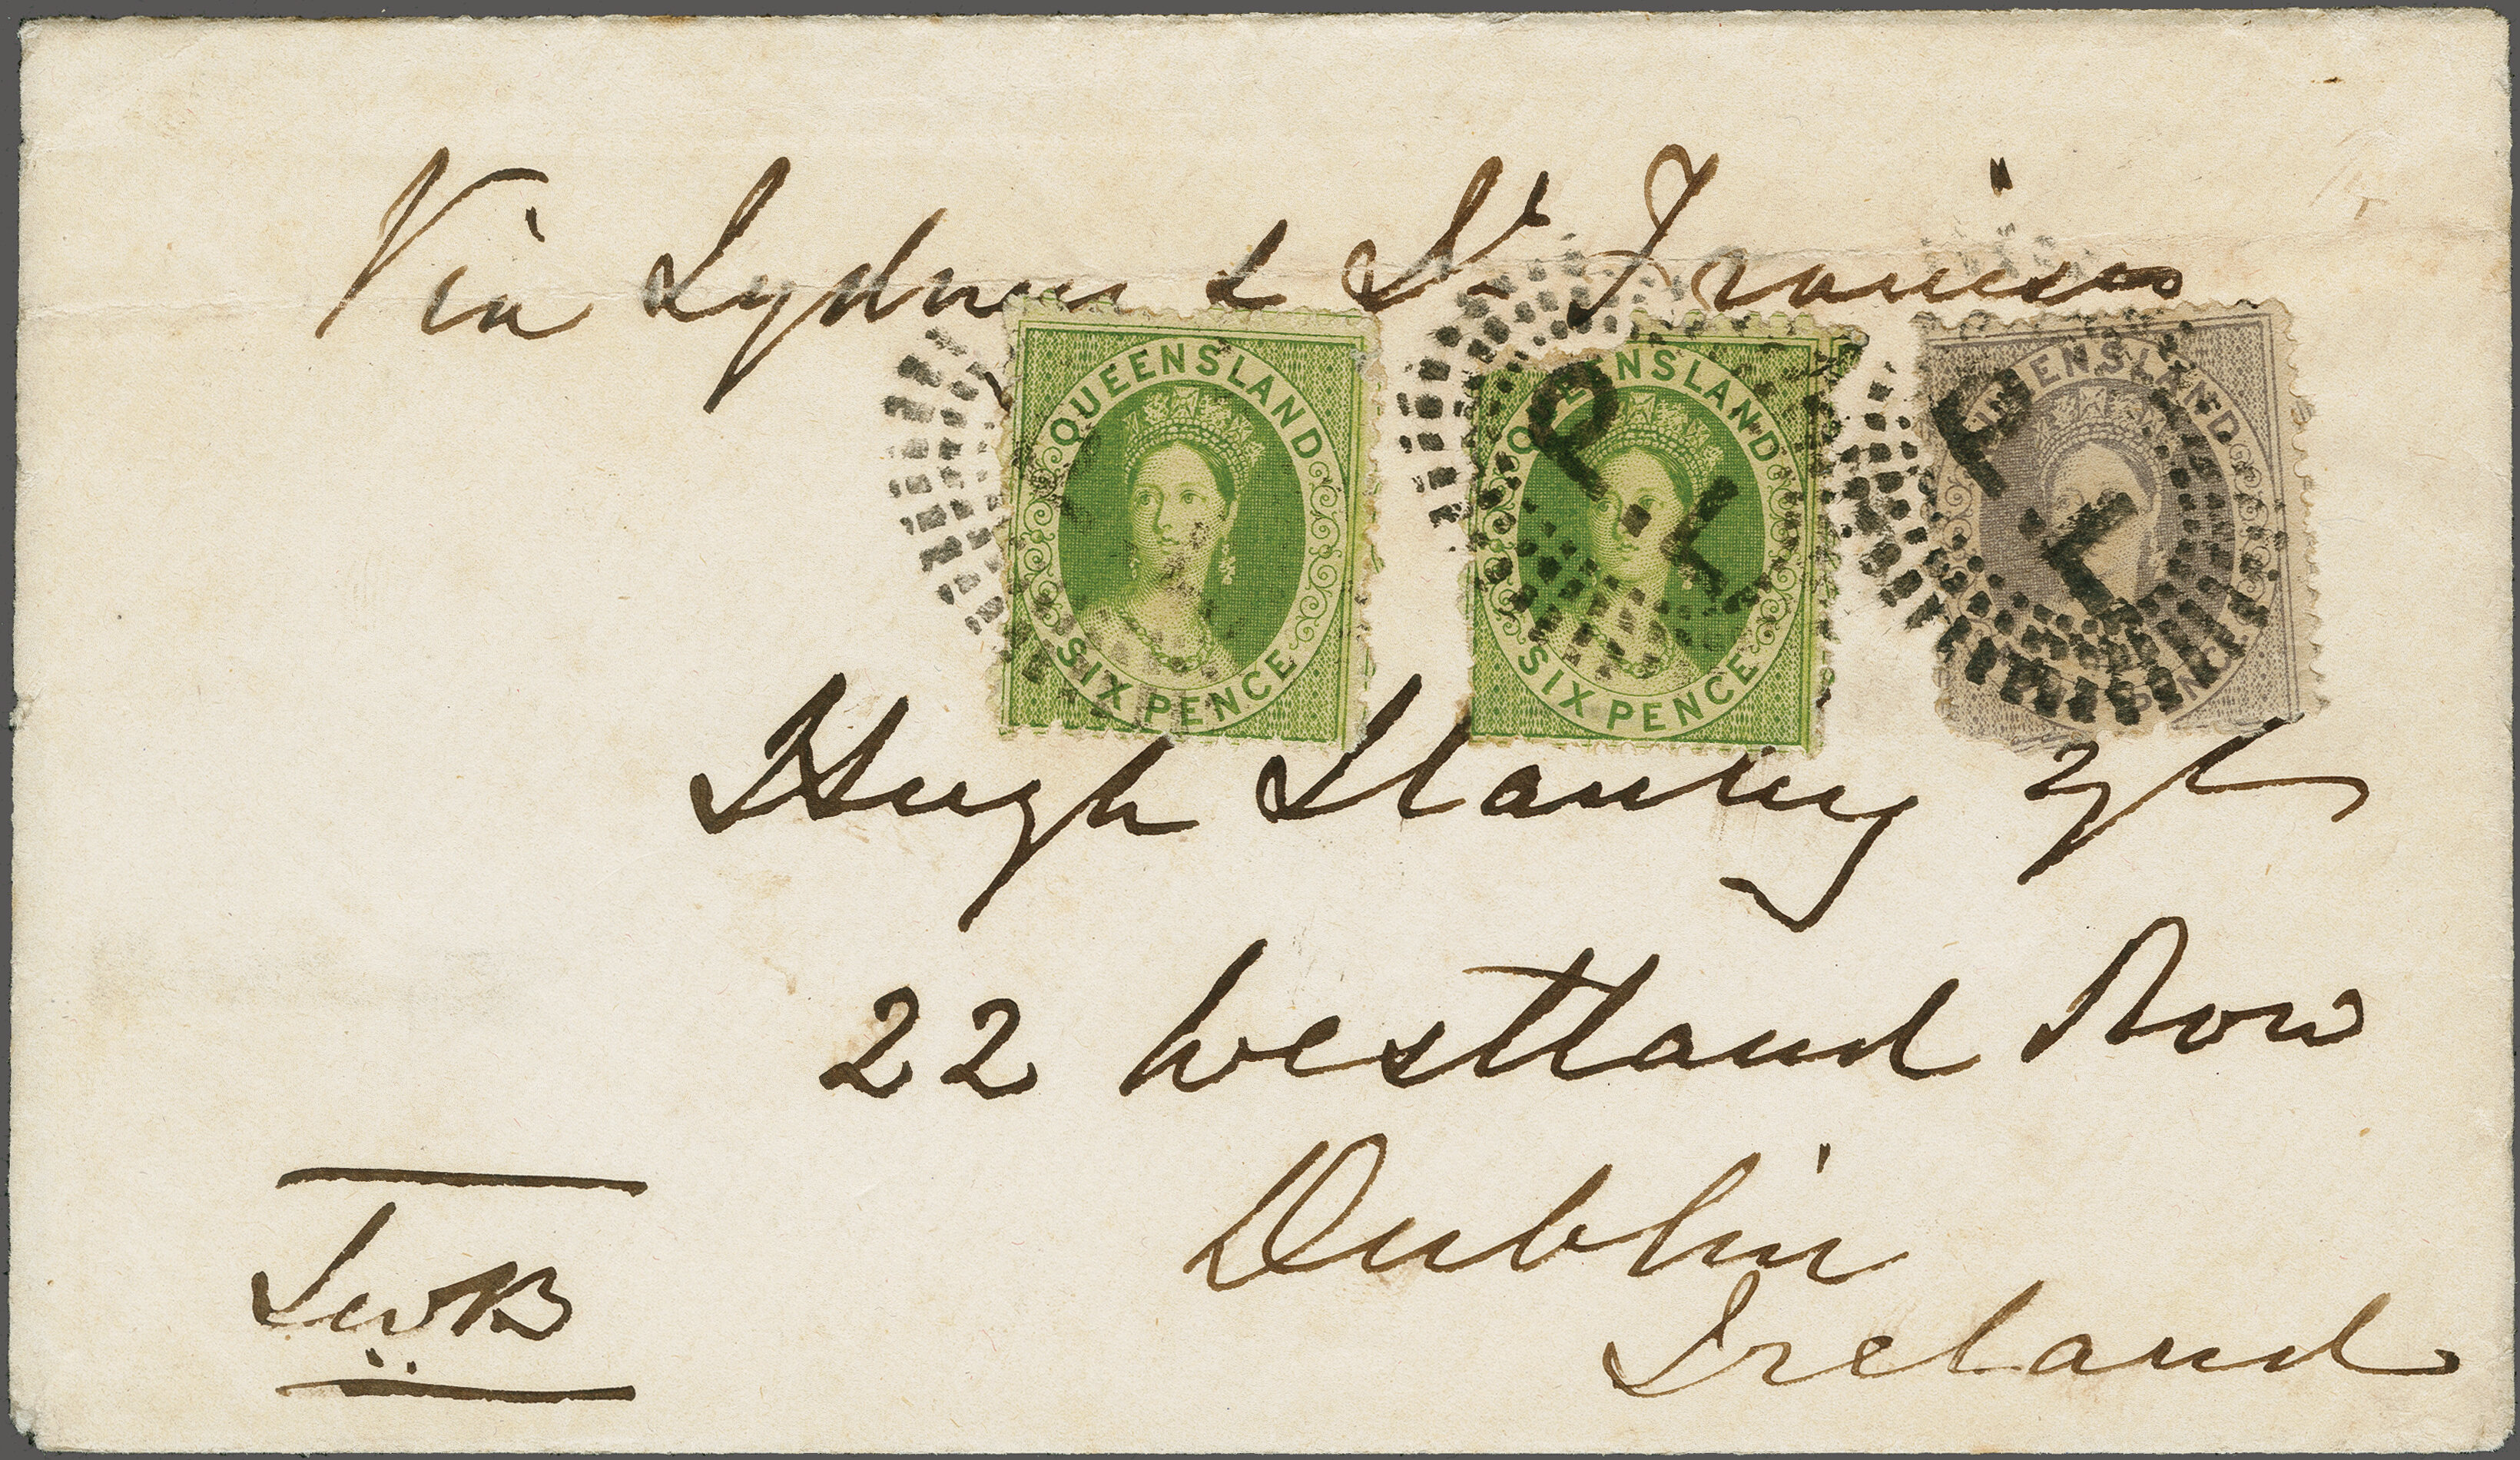 Via Sydney & St. Francisco
QUEENSLAND
SIX PENCE
QUEENSLAND
SIX PENCE
P L
QUEENSLAND
PENCE
P L
Hugh Stanley
22 Westland Row
Dublin
Ireland